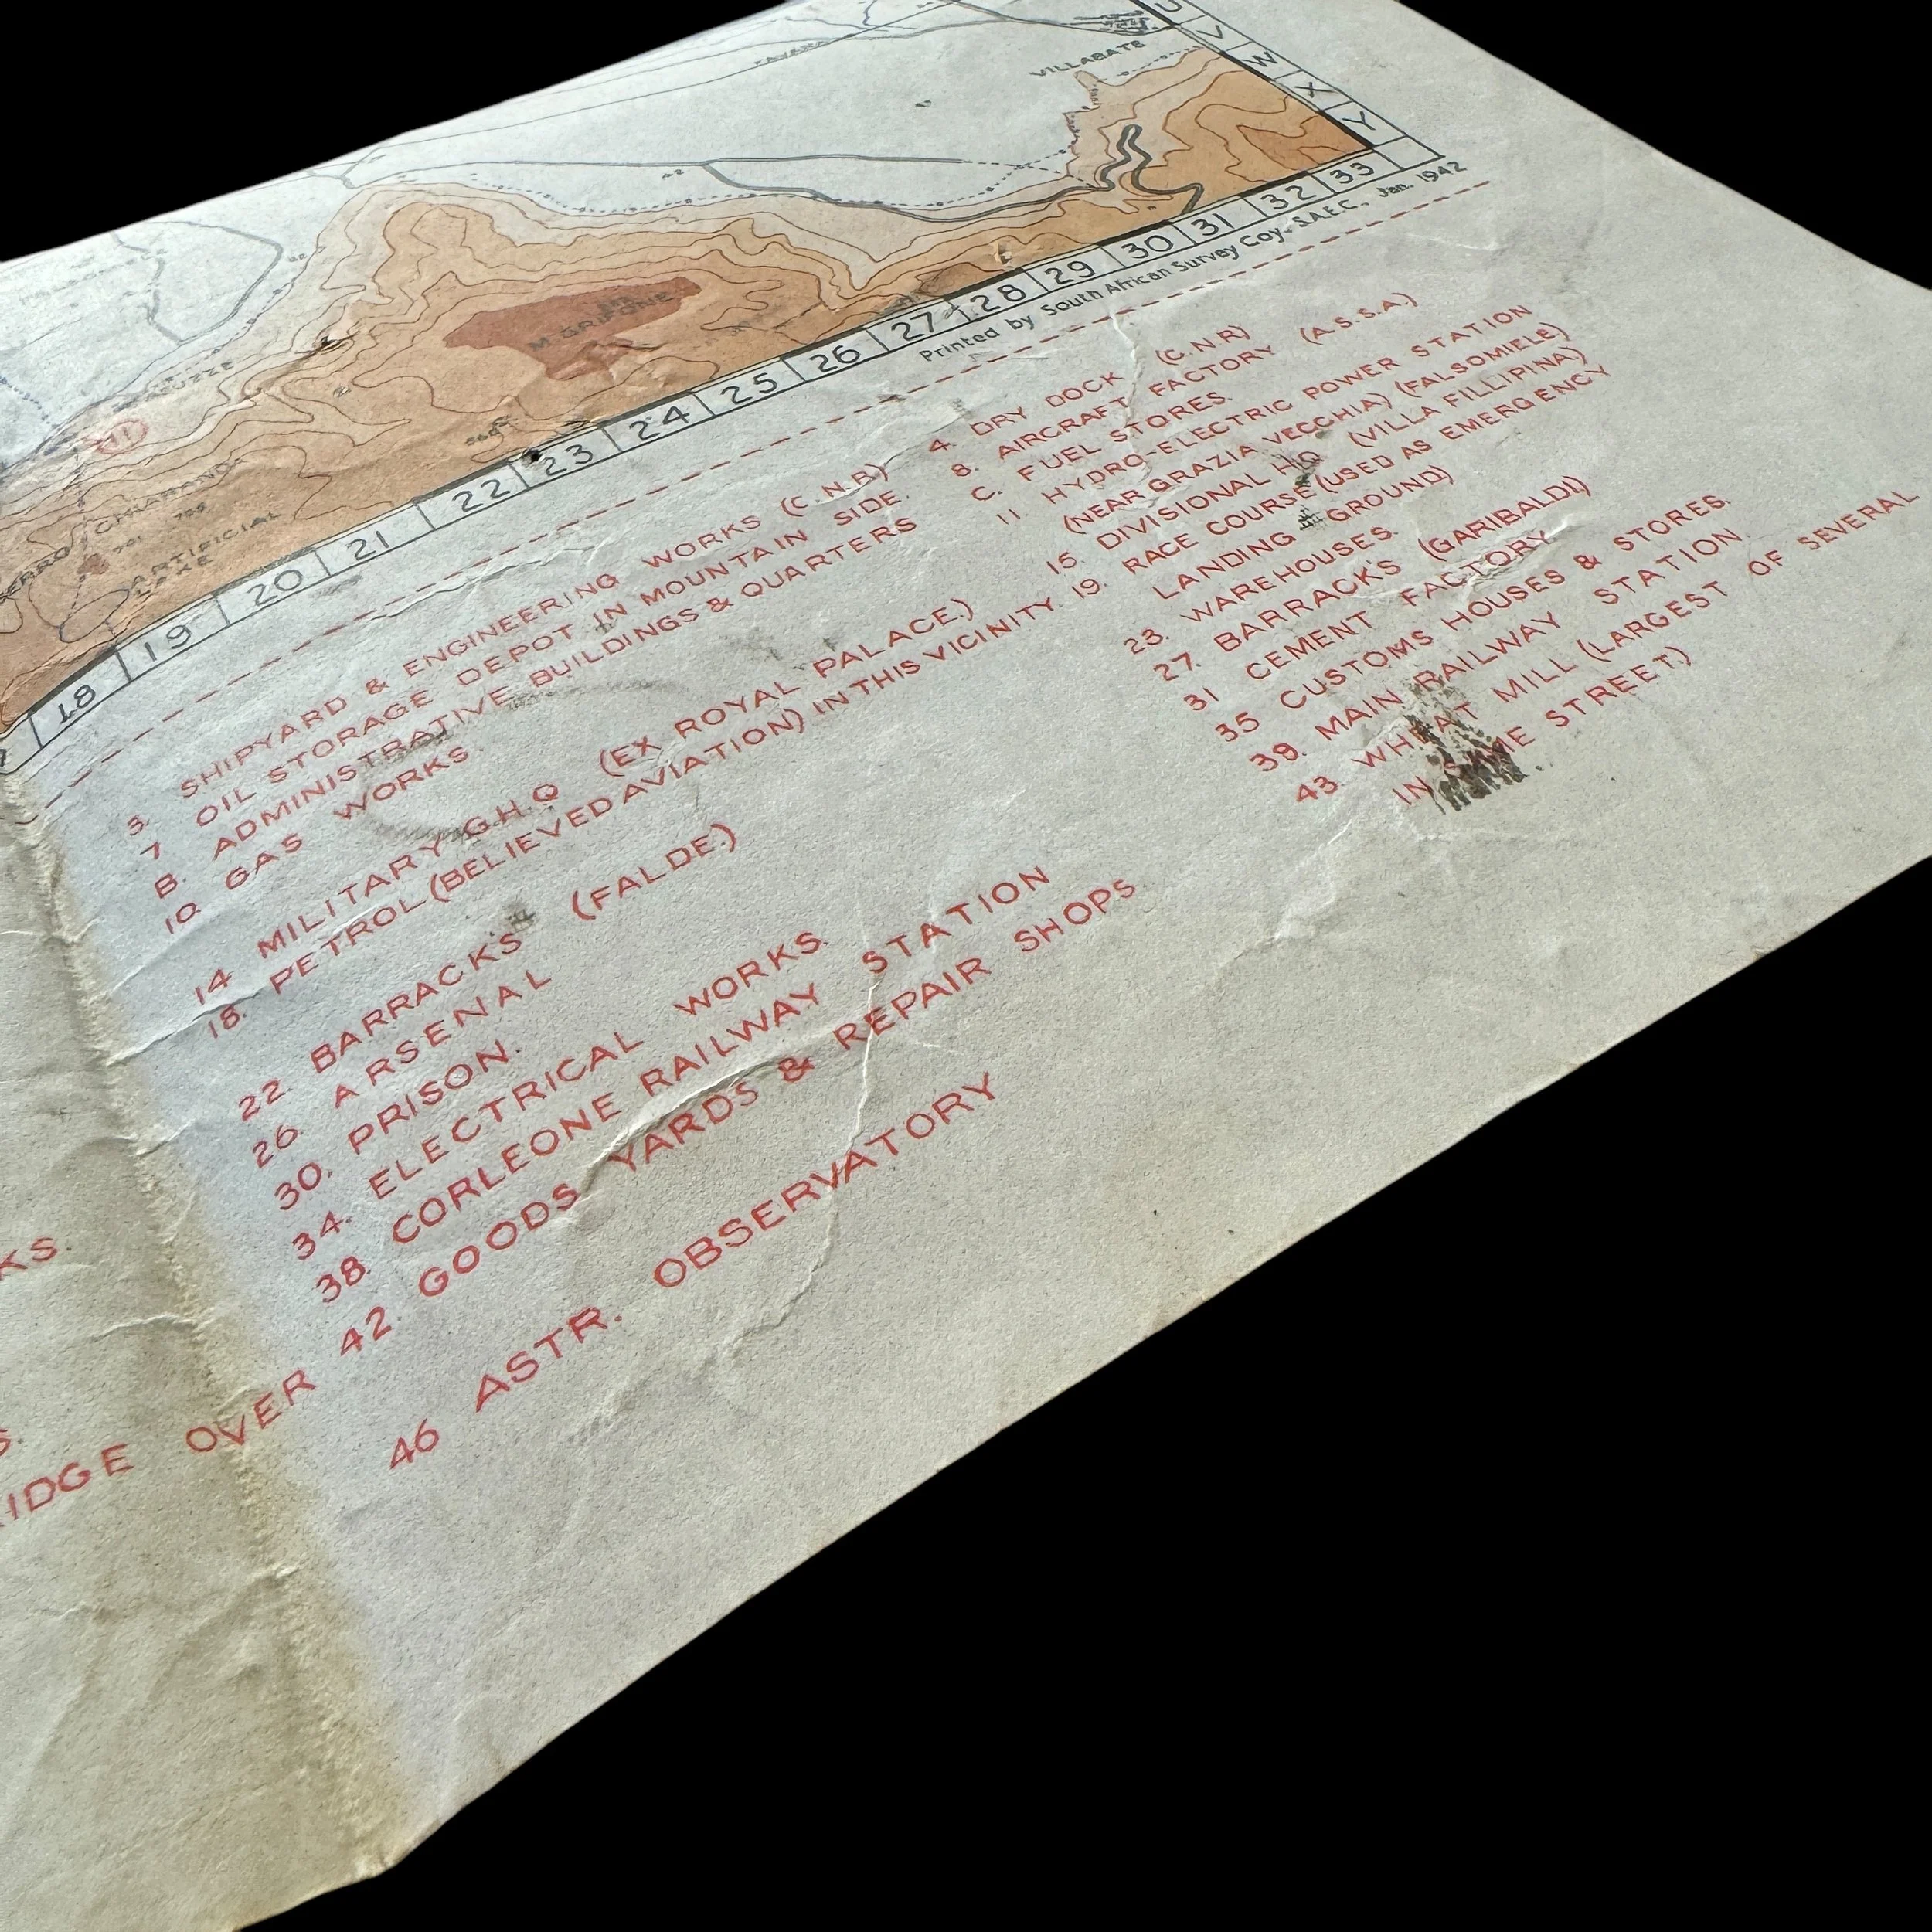 U
V
W
X
Y
FAVARA
VILLABATE
M. GRIFONE
CHIARANO
ARTIFICIAL
LAKE
11
18 19 20 21 22 23 24 25 26 27 28 29 30 31 32 33
Printed by South African Survey Coy., S.A.E.C., Jan. 1942
3. SHIPYARD & ENGINEERING WORKS (C.N.R)
7 OIL STORAGE DEPOT IN MOUNTAIN SIDE.
B. ADMINISTRATIVE BUILDINGS & QUARTERS
10. GAS WORKS
14 MILITARY G.H.Q (EX ROYAL PALACE.)
18. PETROL (BELIEVED AVIATION) IN THIS VICINITY.
22. BARRACKS (FALDE.)
26. ARSENAL
30. PRISON.
34. ELECTRICAL WORKS.
38. CORLEONE RAILWAY STATION
42. GOODS YARDS & REPAIR SHOPS
46 ASTR. OBSERVATORY
4. DRY DOCK (C.N.R)
8. AIRCRAFT FACTORY (A.S.S.A.)
C. FUEL STORES.
11 HYDRO-ELECTRIC POWER STATION
(NEAR GRAZIA VECCHIA) (FALSOMIELE)
15. DIVISIONAL HQ (VILLA FILLIPINA)
19. RACE COURSE (USED AS EMERGENCY
LANDING GROUND)
23. WAREHOUSES.
27. BARRACKS (GARIBALDI)
31 CEMENT FACTORY
35 CUSTOMS HOUSES & STORES.
39. MAIN RAILWAY STATION.
43. WHEAT MILL (LARGEST OF SEVERAL
IN SAME STREET.)
KS.
S.
IDGE OVER